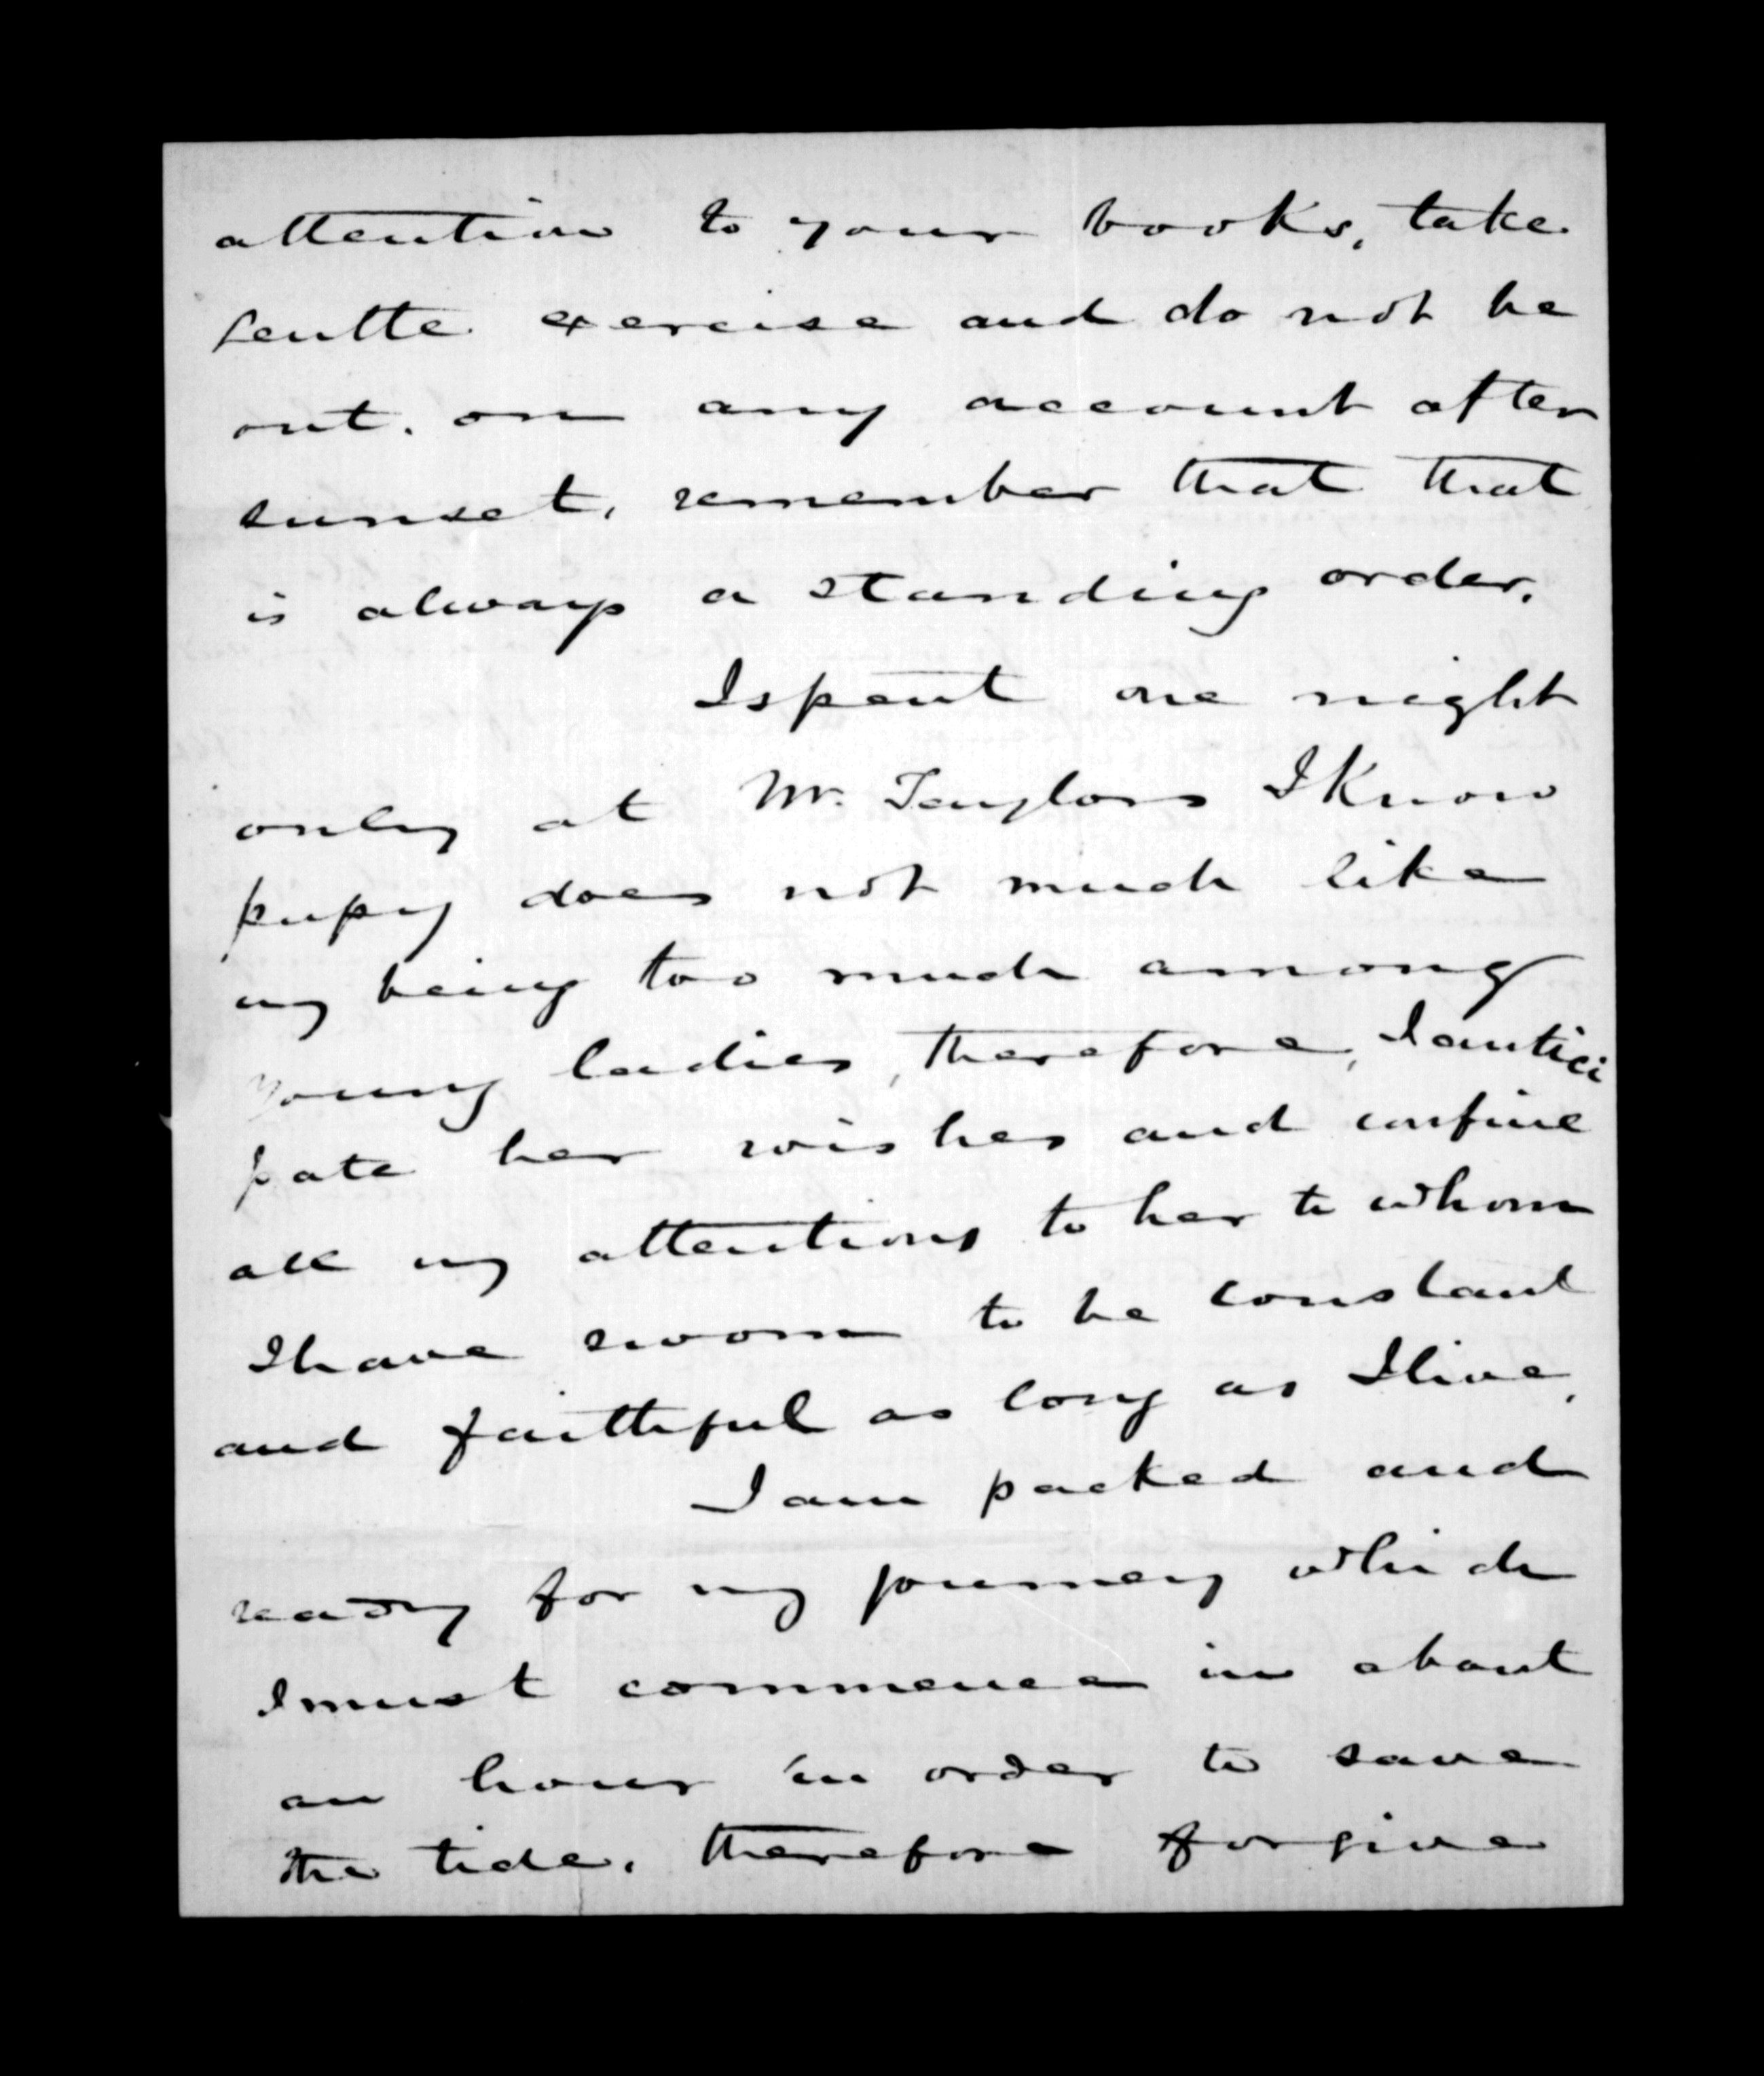 attention to your books, take
gentle exercise and do not be
out. on any account after
sunset, remember that that
is always a standing order.
I spent one night
only at Mr. Taylors I know
pupsy does not much like
my being too much among
young ladies, therefore, I antici
pate her wishes and confine
all my attentions to her to whom
I have sworn to be constant
and faithful as long as I live,
I am packed and
ready for my journey which
I must commence in about
an hour in order to save
the tide. therefore forgive